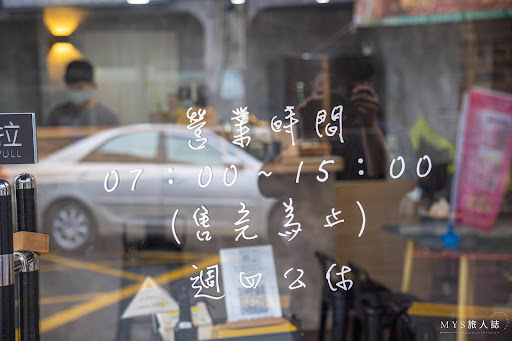 營業時間
07:00~15:00
(售完為止)
週四公休
拉
PULL
MYS旅人誌